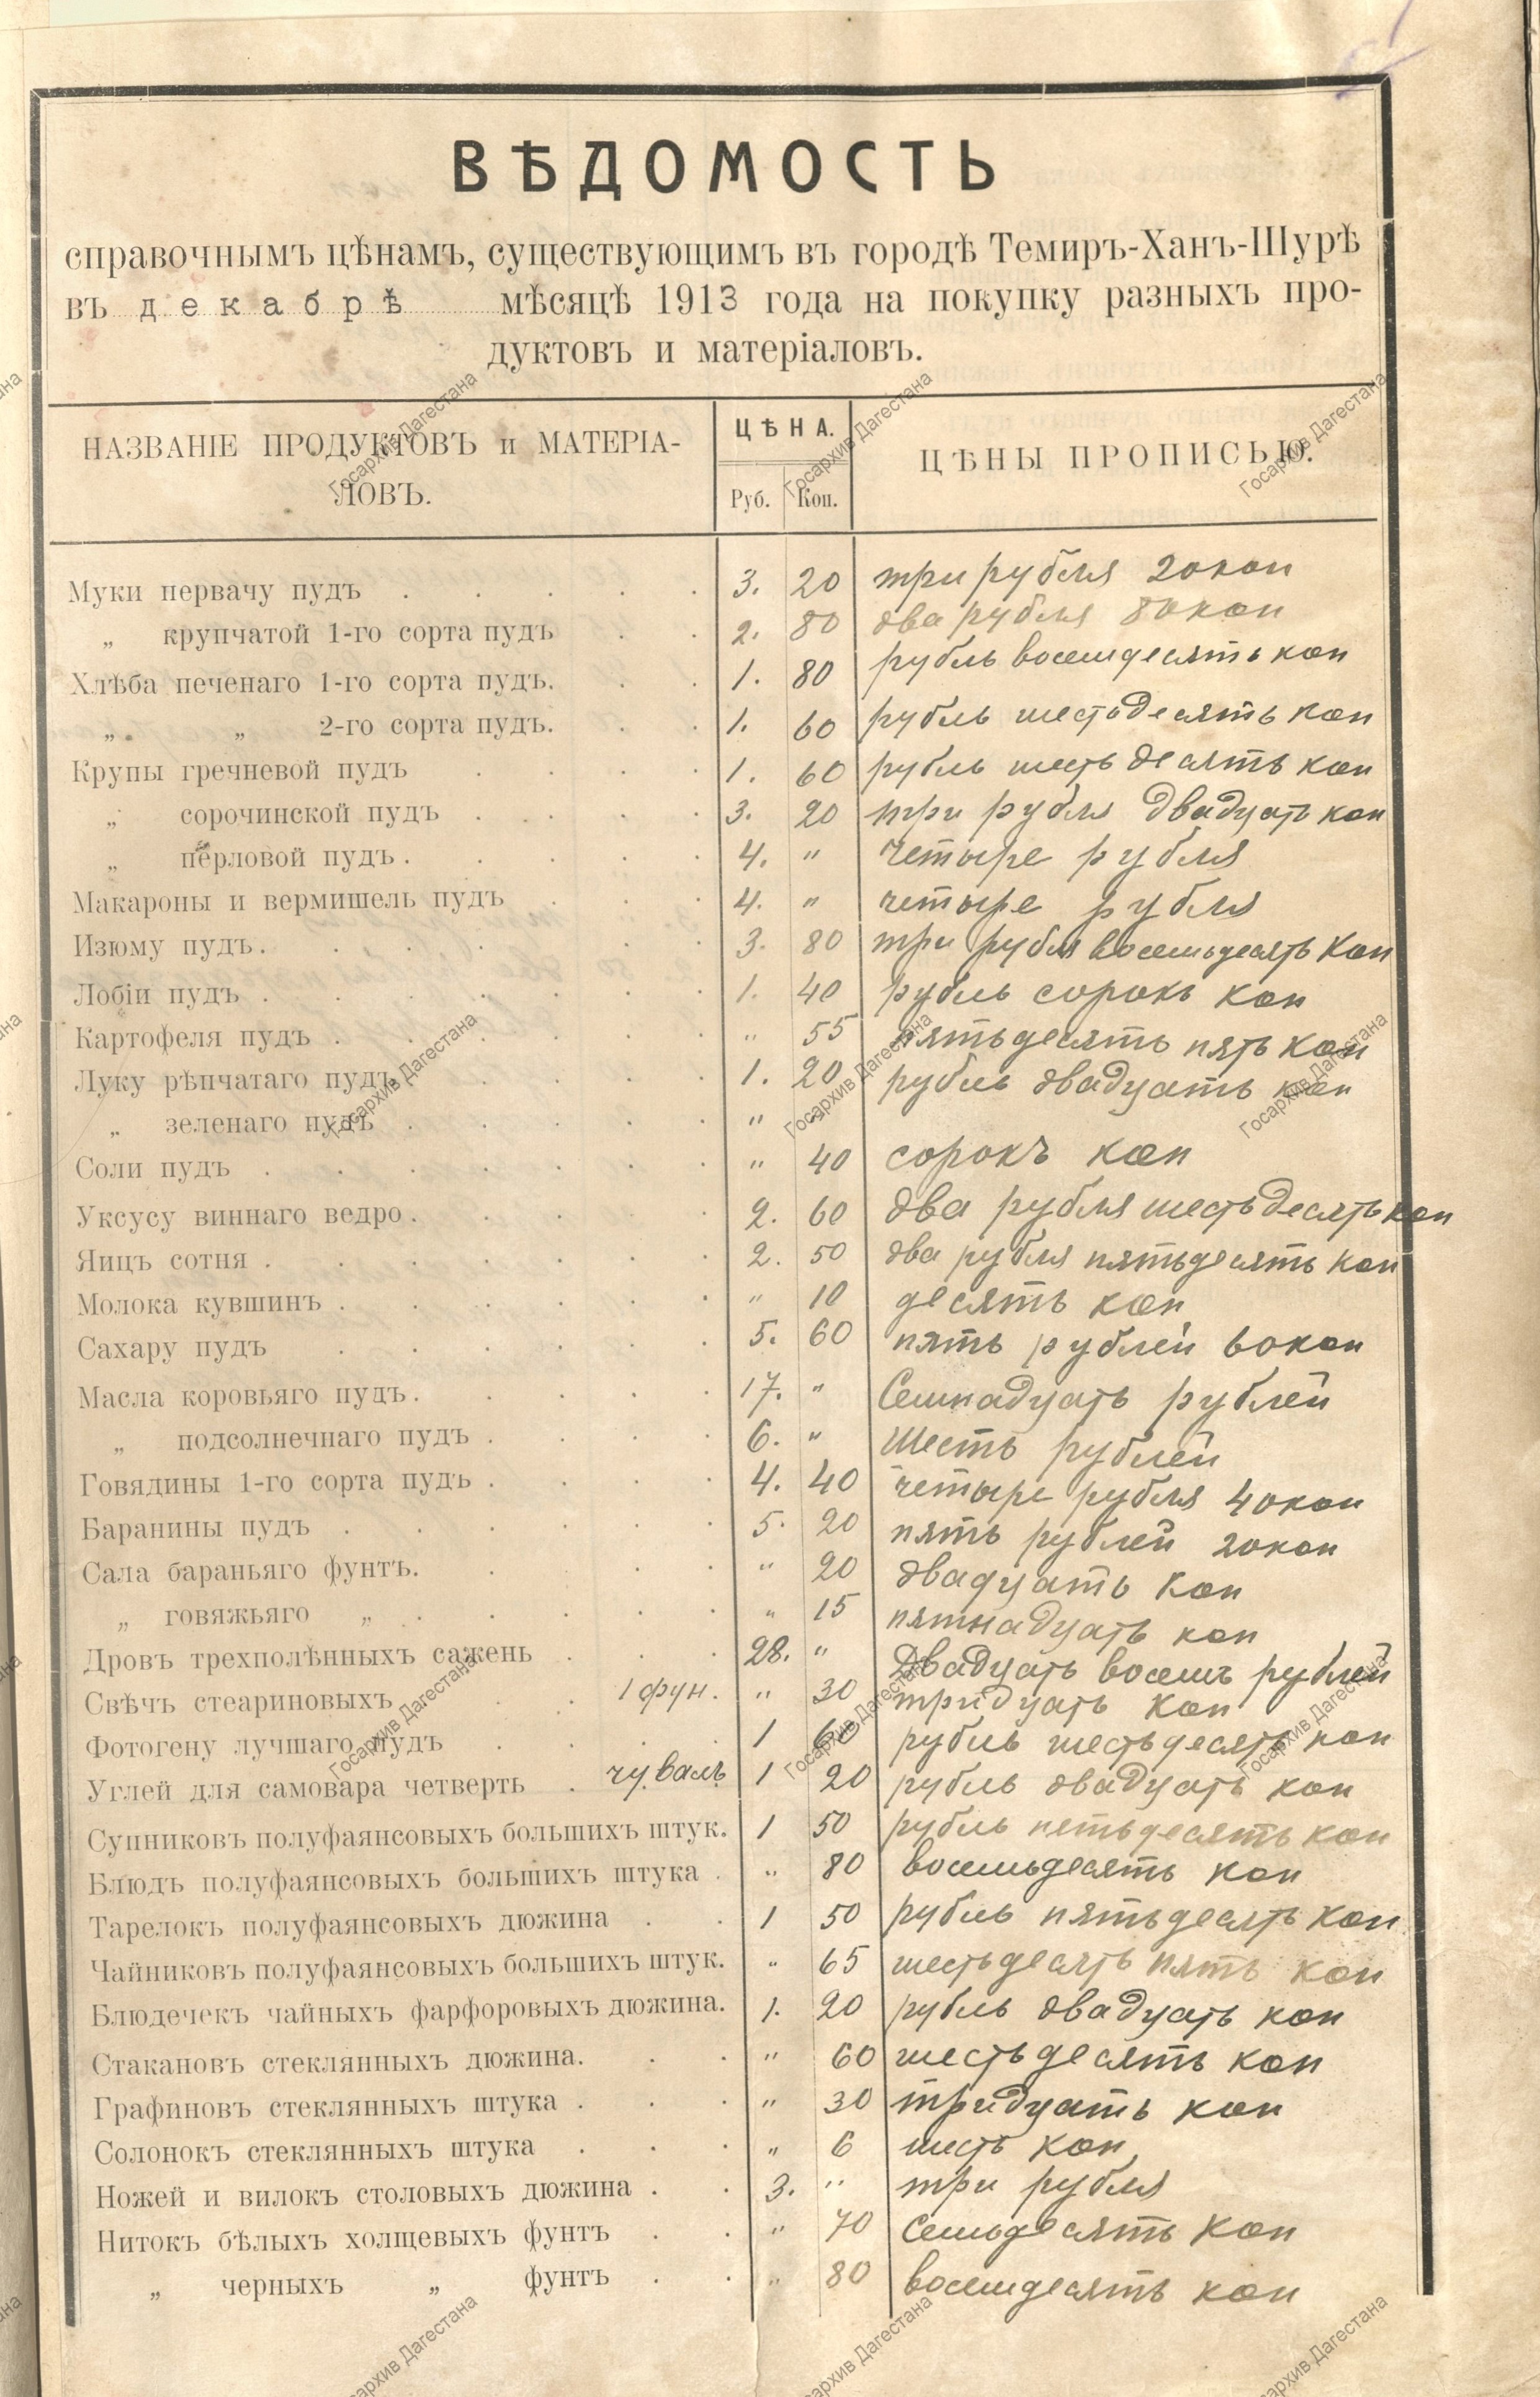 ВѢДОМОСТЬ
справочнымъ цѣнамъ, существующимъ въ городѣ Темиръ-Ханъ-Шурѣ
въ декабрѣ мѣсяцѣ 1913 года на покупку разныхъ про-
дуктовъ и матеріаловъ.
НАЗВАНІЕ ПРОДУКТОВЪ и МАТЕРІА-
ЛОВЪ.
ЦѢНА.
Руб. Коп.
ЦѢНЫ ПРОПИСЬЮ.
Муки первачу пудъ 3. 20 три рубля 20 коп
„ крупчатой 1-го сорта пудъ 2. 80 два рубля 80 коп
Хлѣба печенаго 1-го сорта пудъ. 1. 80 рубль восемдесять коп
„ „ 2-го сорта пудъ. 1. 60 рубль шестьдесять коп
Крупы гречневой пудъ 1. 60 рубль шестьдесять коп
„ сорочинской пудъ 3. 20 три рубля двадцать коп
„ перловой пудъ. 4. „ четыре рубля
Макароны и вермишель пудъ 4. „ четыре рубля
Изюму пудъ. 3. 80 три рубля восемьдесять коп
Лобіи пудъ 1. 40 рубль сорокъ коп
Картофеля пудъ „ 55 пятьдесять пять коп
Луку рѣпчатаго пудъ 1. 20 рубль двадцать коп
„ зеленаго пудъ „ „
Соли пудъ „ 40 сорокъ коп
Уксусу виннаго ведро. 2. 60 два рубля шестьдесять коп
Яицъ сотня 2. 50 два рубля пятьдесять коп
Молока кувшинъ „ 10 десять коп
Сахару пудъ 5. 60 пять рублей 60 коп
Масла коровьяго пудъ. 17. „ Семнадцать рублей
„ подсолнечнаго пудъ 6. „ Шесть рублей
Говядины 1-го сорта пудъ 4. 40 четыре рубля 40 коп
Баранины пудъ 5. 20 пять рублей 20 коп
Сала бараньяго фунтъ. „ 20 двадцать коп
„ говяжьяго „ „ 15 пятнадцать коп
Дровъ трехполѣнныхъ сажень 28. „ Двадцать восемъ рублей
Свѣчъ стеариновыхъ 1 фун. „ 30 тридцать коп
Фотогену лучшаго пудъ 1 60 рубль шестьдесять коп
Углей для самовара четверть чувалъ 1 20 рубль двадцать коп
Супниковъ полуфаянсовыхъ большихъ штук. 1 50 рубль петьдесять коп
Блюдъ полуфаянсовыхъ большихъ штука „ 80 восемьдесять коп
Тарелокъ полуфаянсовыхъ дюжина 1 50 рубль пятьдесять коп
Чайниковъ полуфаянсовыхъ большихъ штук. „ 65 шестьдесять пять коп
Блюдечекъ чайныхъ фарфоровыхъ дюжина. 1. 20 рубль двадцать коп
Стакановъ стеклянныхъ дюжина. „ 60 шестьдесять коп
Графиновъ стеклянныхъ штука „ 30 тридцать коп
Солонокъ стеклянныхъ штука „ 6 шесть коп
Ножей и вилокъ столовыхъ дюжина 3. „ три рубля
Нитокъ бѣлыхъ холщевыхъ фунтъ „ 70 семьдесять коп
„ черныхъ „ фунтъ „ 80 восемдесять коп
Госархив Дагестана